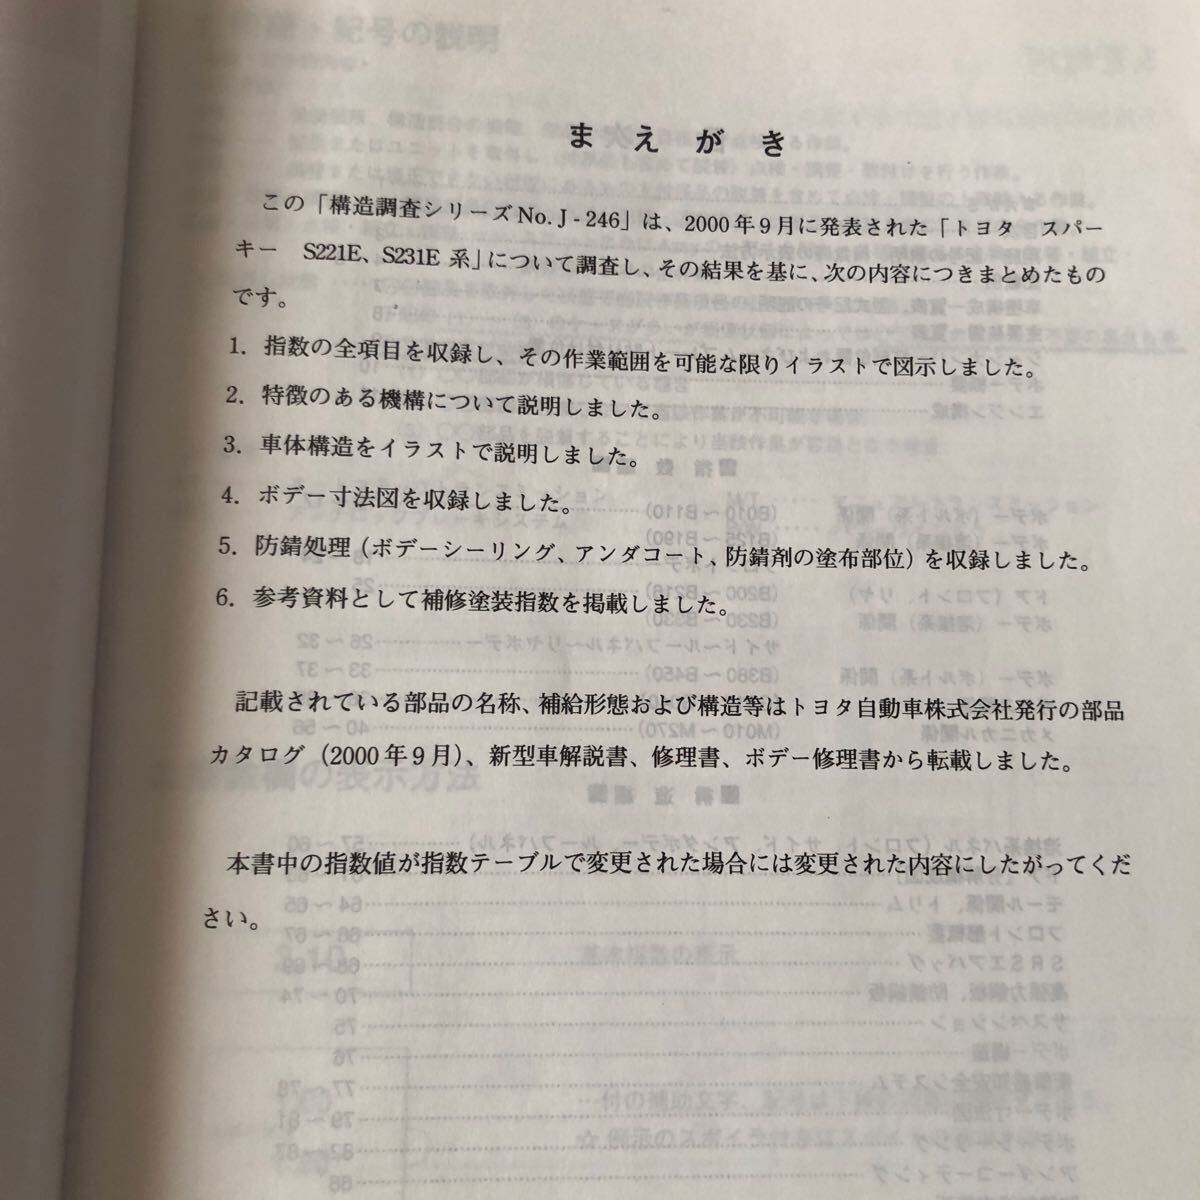 まえがき
この「構造調査シリーズNo. J - 246」は、2000年9月に発表された「トヨタ　スパー
キー　S221E、S231E 系」について調査し、その結果を基に、次の内容につきまとめたもの
です。
1. 指数の全項目を収録し、その作業範囲を可能な限りイラストで図示しました。
2. 特徴のある機構について説明しました。
3. 車体構造をイラストで説明しました。
4. ボデー寸法図を収録しました。
5. 防錆処理（ボデーシーリング、アンダコート、防錆剤の塗布部位）を収録しました。
6. 参考資料として補修塗装指数を掲載しました。
記載されている部品の名称、補給形態および構造等はトヨタ自動車株式会社発行の部品
カタログ（2000年9月）、新型車解説書、修理書、ボデー修理書から転載しました。
本書中の指数値が指数テーブルで変更された場合には変更された内容にしたがってくだ
さい。